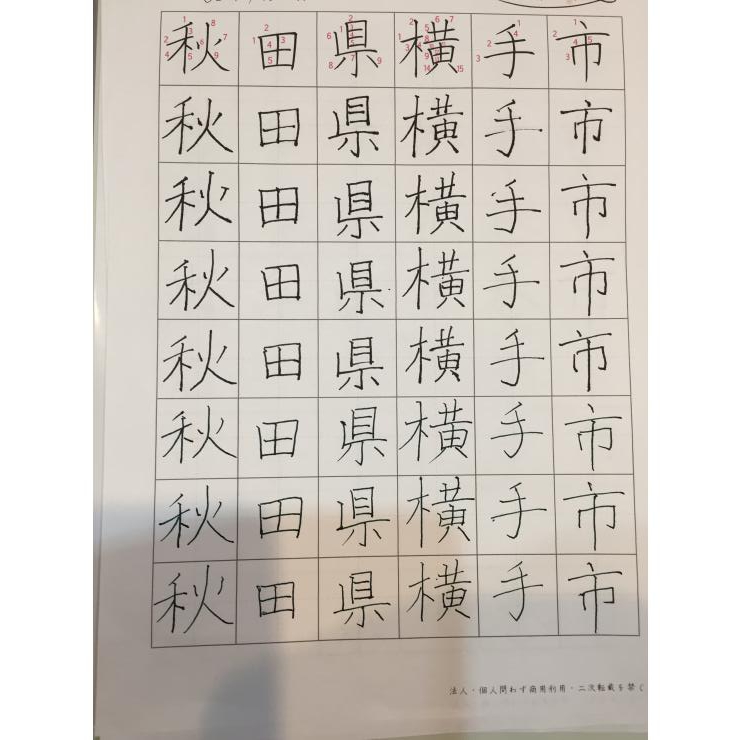 秋田県横手市
秋田県横手市
秋田県横手市
秋田県横手市
秋田県横手市
秋田県横手市
秋田県横手市
秋田県横手市
法人・個人問わず商用利用・二次転載を禁